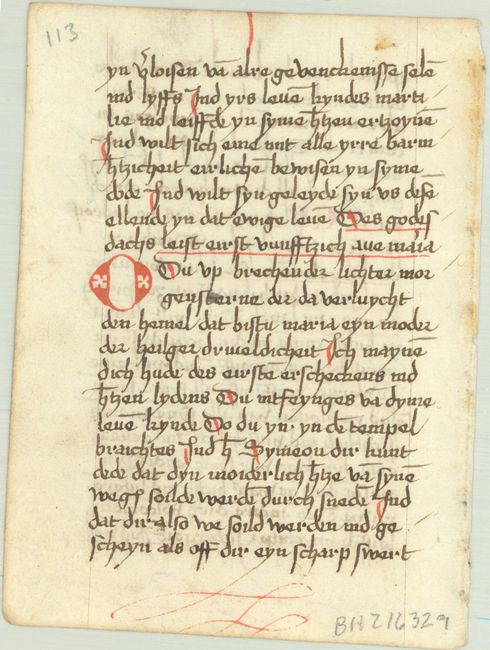 113
yn v̓loisen vā alre gevenckenisse selē
ind lyffs Ind yrs levē kyndes marti
lie ind leiffde yn syme h̓tzen ertzoynē
Ind wilt sich eme mit alle yrre barm
h̓tzicheit eirlichē bewisen yn syme
dode Ind wilt syn geleyde syn vs desē
ellende yn dat ewige levē Des godes
dachs leist eirst vunfftzich ave maria
O Du up brechender lichter mor
gensterne der da verluycht
den hemel dat bistu maria eyn moder
der heilger driveldicheit Ich maynē
dich hude des eirstē erschreckens ind
h̓tzen lydens Du intfeynges vā dyme
levē kynde Do du yn yn dē tempel
braichtes Ind h̓ Symeon dir kunt
dede dat dyn moiderlich h̓tze vā synē
wegē soilde werdē durch snedē Ind
dat dir also we soild werden ind ge
scheyn als off dir eyn scharp swert
BH 21632 9